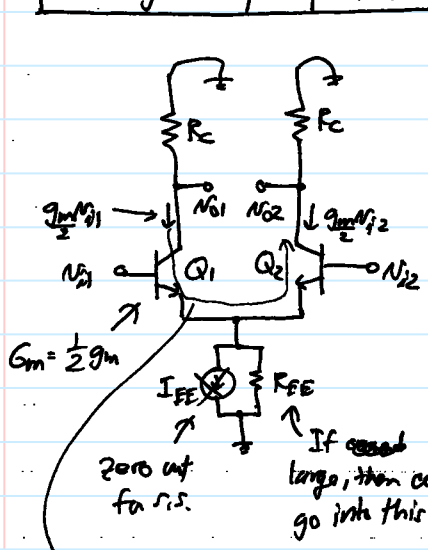 Rc Rc
gm/2 vi1 vo1 vo2 gm/2 vi2
vi1 Q1 Q2 vi2
Gm = 1/2 gm
IEE REE
zero out
for s.s.
If
large, then
go into this